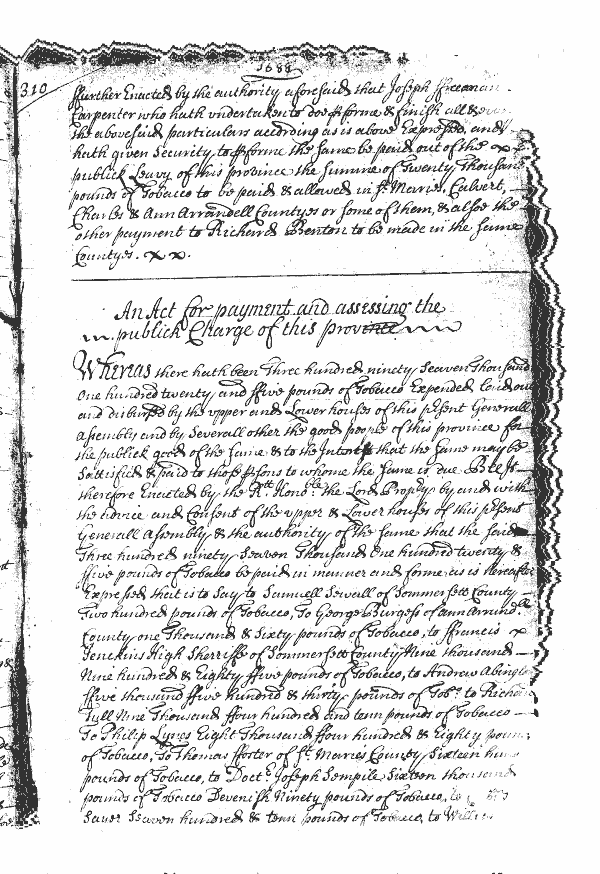 1688
310
ffurther Enacted by the authority aforesaid that Joseph ffreeman
Carpenter who hath undertaken to doe pforme & finish all &
the abovesaid particulars according as is above Expressed, and
hath given Security to pforme the same be paid out of the x x
publick Leavy of this province the summe of Twenty Thousand
pounds of Tobacco to be paid & allowed in St. Maries, Calvert,
Charles & Ann Arrundell Countyes or some of them, & alsoe the
other payment to Richard Benton to be made in the same
Countyes. x x.
An Act for payment and assessing the
publick Charge of this province
Whereas there hath been Three hundred ninety Seaven Thousand
One hundred twenty and ffive pounds of Tobacco Expended laid out
and disbursed by the upper and Lower houses of this psent Generall
Assembly and by Severall other the good people of this province for
the publick good of the same & to the Intent that the same may be
Sattisfied & paid to those psons to whome the same is due. Be it
therefore Enacted by the Rtt Honoble the Lord Propry by and with
the advice and Consent of the upper & Lower houses of this psent
Generall Assembly & the authority of the same that the said
Three hundred ninety Seaven Thousand One hundred twenty &
ffive pounds of Tobacco be paid in manner and forme as is hereafter
Expressed that is to say to Samuell Sewall of Sommersett County
Two hundred pounds of Tobacco, To George Burgess of ann Arrundll
County one Thousand & Sixty pounds of Tobacco, to ffrancis x
Jenckins High Sherriffe of Sommersett County Nine thousand
Nine hundred & Eighty ffive pounds of Tobacco, to Andrew Abington
ffive thousand ffive hundred & thirty pounds of Tobo. to Richard
Tull Nine Thousand ffour hundred and tenn pounds of Tobacco
To Philip Lynes Eight Thousand ffour hundred & Eighty pounds
of Tobacco, To Thomas fforter of St. Maries County Sixteen
pounds of Tobacco, to Doctr. Joseph Sempile Sixteen thousand
pounds of Tobacco Devenish Ninety pounds of Tobacco, to
Sayer Seaven hundred & tenn pounds of Tobacco, to